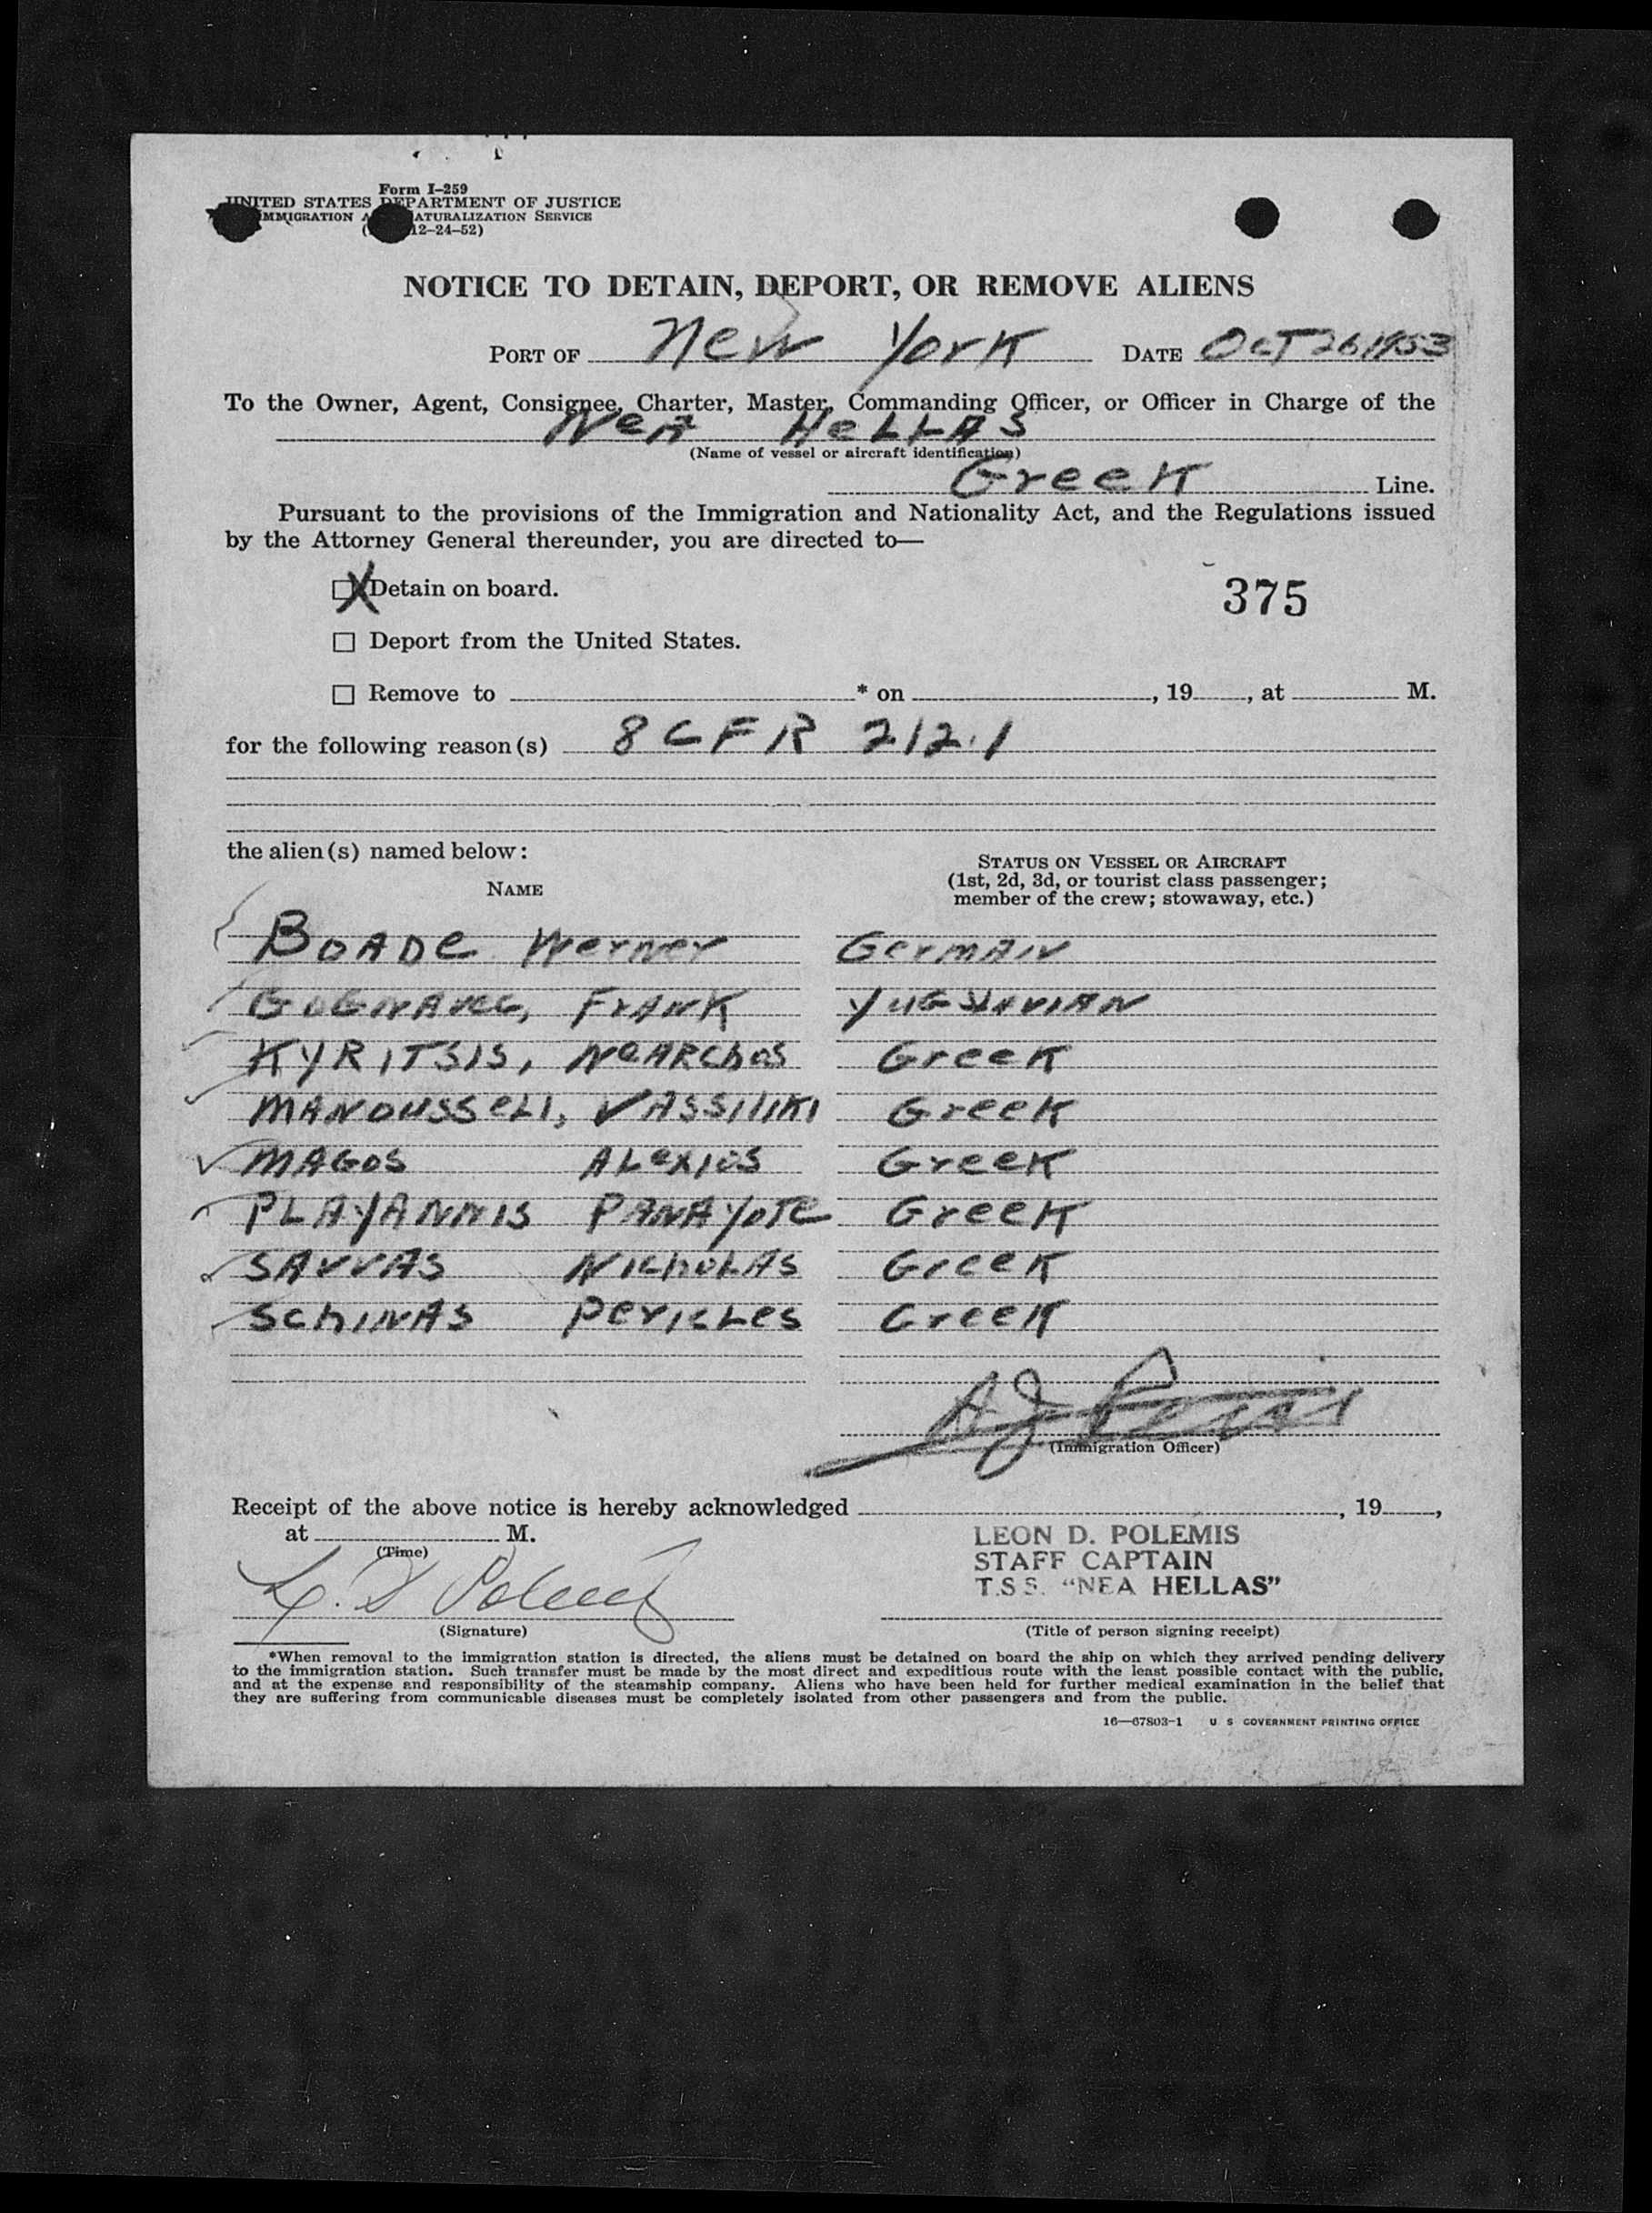 Form I-259
UNITED STATES DEPARTMENT OF JUSTICE
IMMIGRATION NATURALIZATION SERVICE
12-24-52)
NOTICE TO DETAIN, DEPORT, OR REMOVE ALIENS
PORT OF New York DATE OCT 26 1953
To the Owner, Agent, Consignee, Charter, Master, Commanding Officer, or Officer in Charge of the
NeA HeLLAS
(Name of vessel or aircraft identification)
Greek Line.
Pursuant to the provisions of the Immigration and Nationality Act, and the Regulations issued
by the Attorney General thereunder, you are directed to—
X Detain on board.
375
☐ Deport from the United States.
☐ Remove to * on , 19 , at M.
for the following reason(s) 8 CFR 212.1
the alien(s) named below:
NAME
STATUS ON VESSEL OR AIRCRAFT
(1st, 2d, 3d, or tourist class passenger;
member of the crew; stowaway, etc.)
BOADe Werner GermAN
FrANK YUGSLAVIAN
KYRITSIS, NeARChos Greek
MANOUSSeLI, VASSILIKI Greek
MAGOS ALexIOS Greek
PLAYANNIS PANAYOTe Greek
SAVVAS NIChOLAS Greek
SchINAS PerICLes Greek
(Immigration Officer)
Receipt of the above notice is hereby acknowledged , 19 ,
at M.
(Time)
LEON D. POLEMIS
STAFF CAPTAIN
T.S.S. "NEA HELLAS"
L. D Polemis
(Signature)
(Title of person signing receipt)
*When removal to the immigration station is directed, the aliens must be detained on board the ship on which they arrived pending delivery
to the immigration station. Such transfer must be made by the most direct and expeditious route with the least possible contact with the public,
and at the expense and responsibility of the steamship company. Aliens who have been held for further medical examination in the belief that
they are suffering from communicable diseases must be completely isolated from other passengers and from the public.
16—67803-1 U S GOVERNMENT PRINTING OFFICE